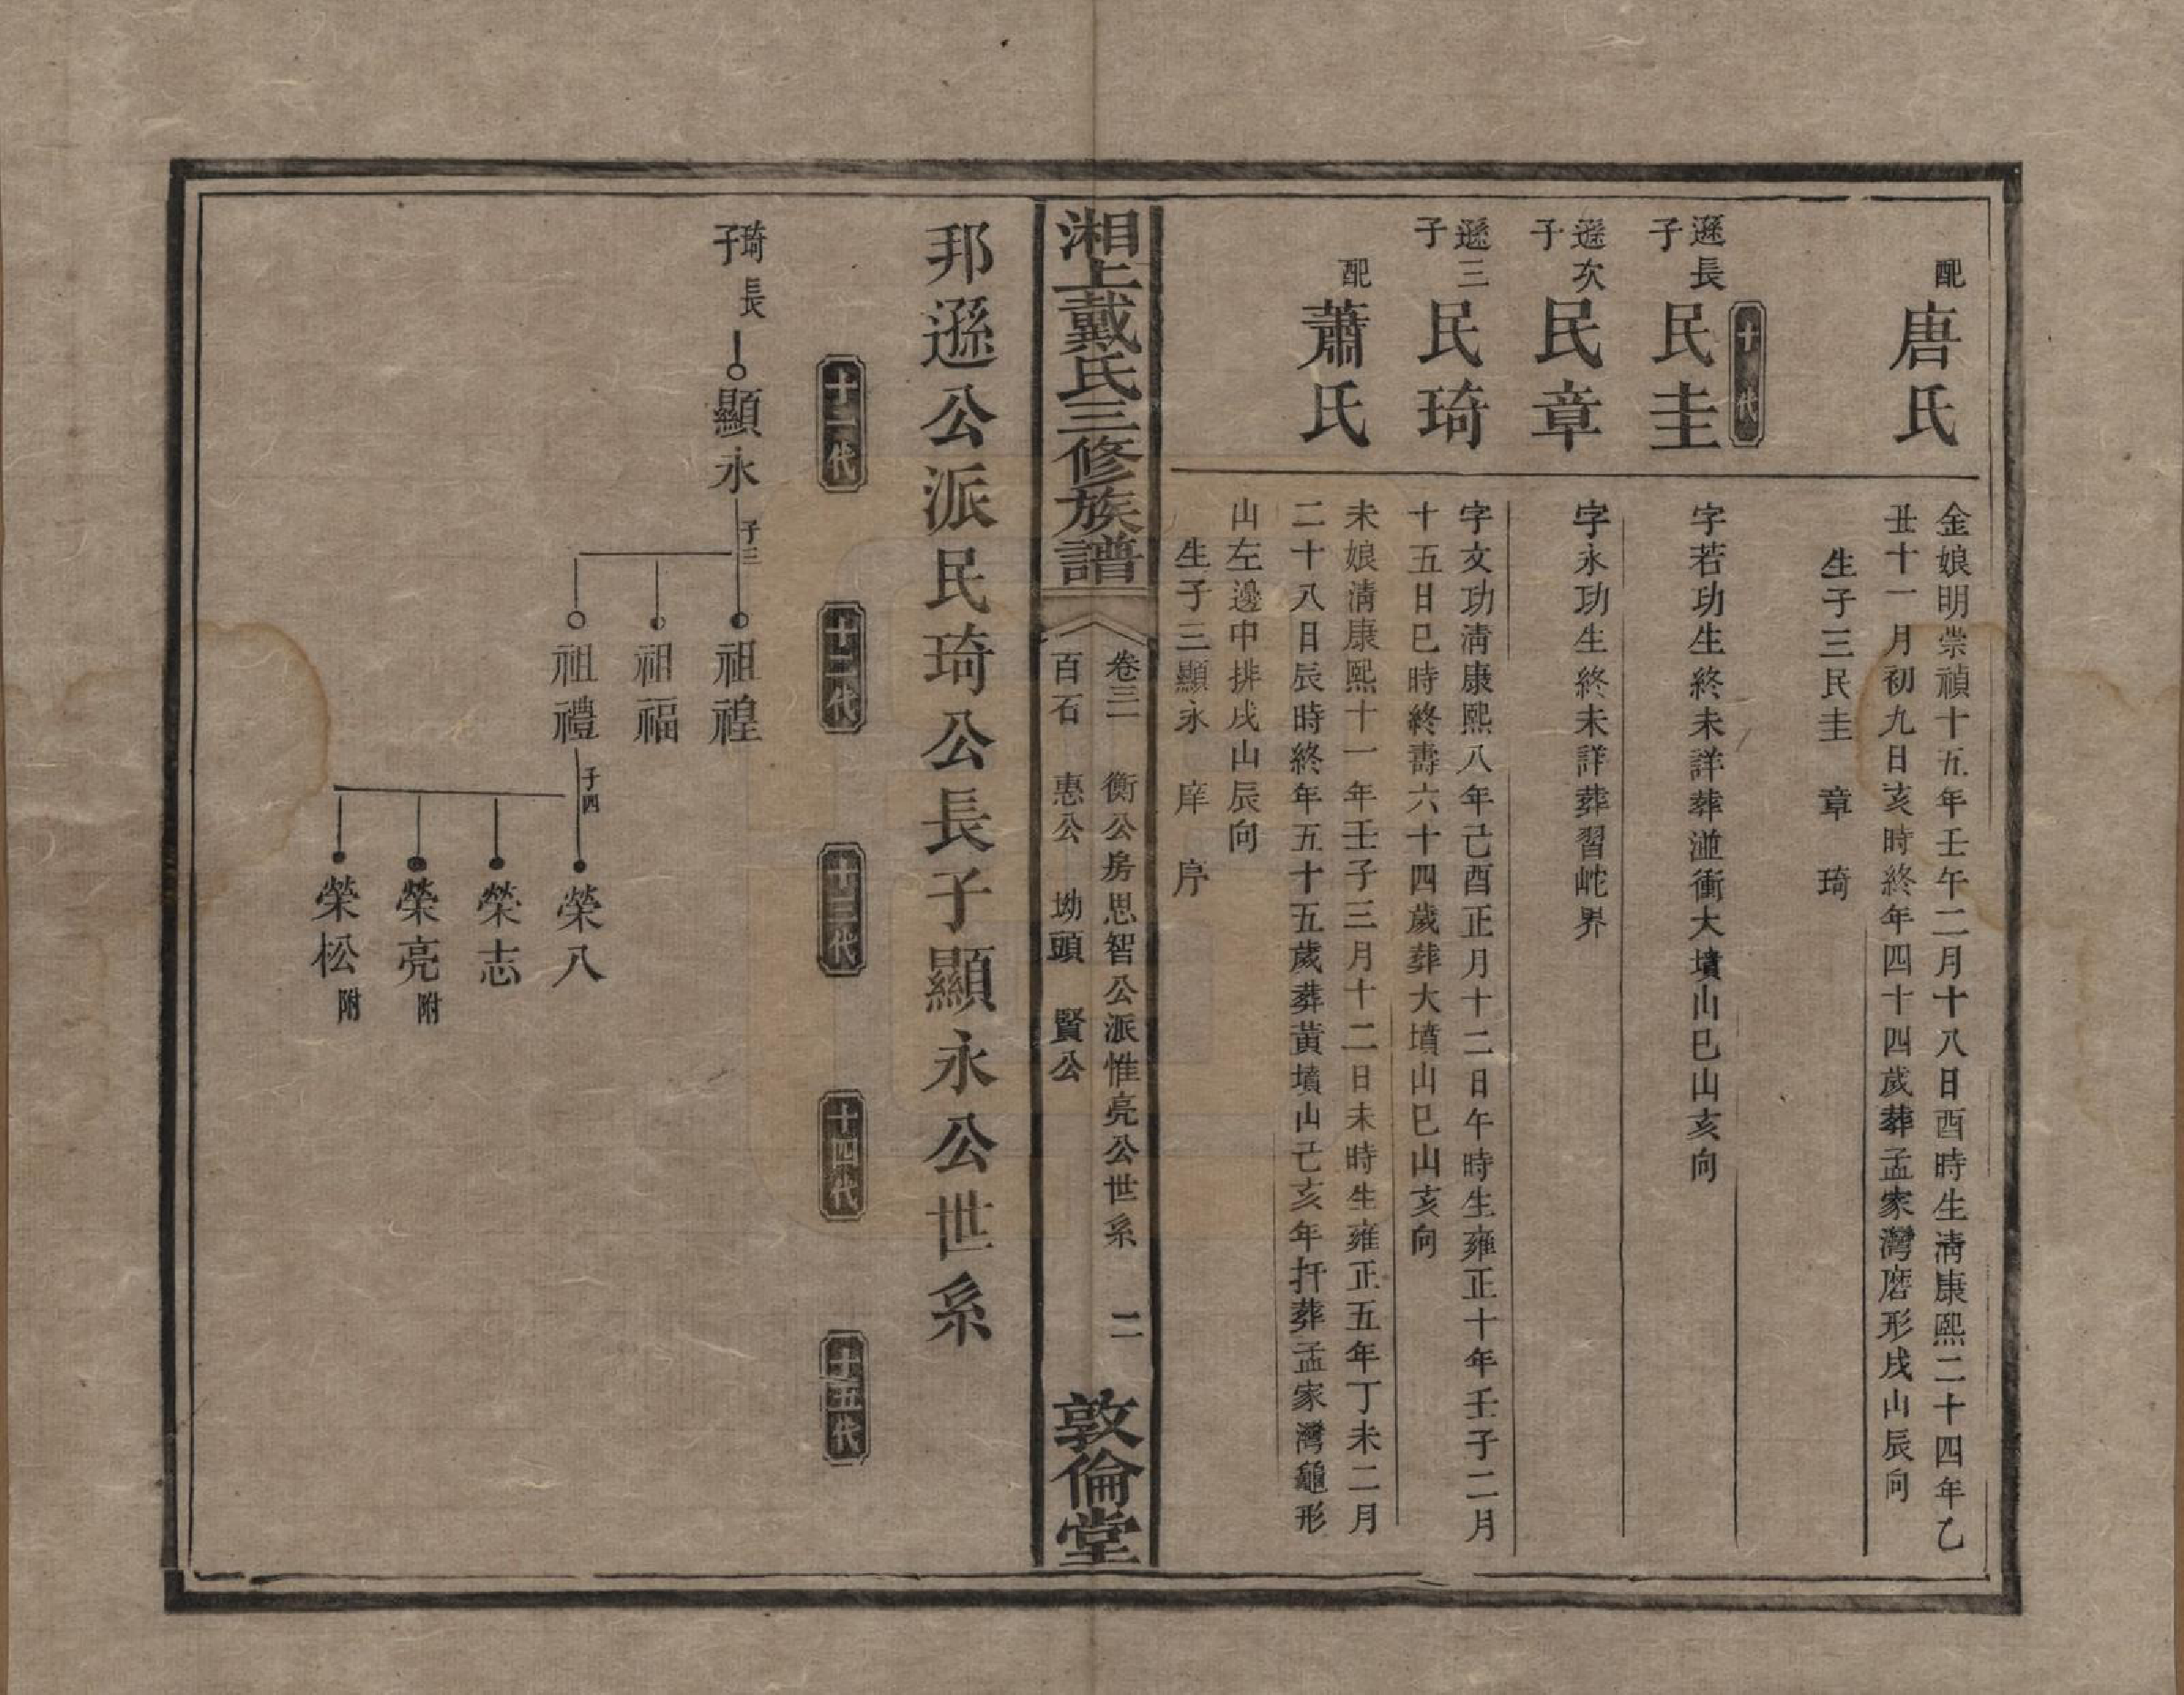 配
唐氏
金娘明崇禎十五年壬午二月十八日酉時生清康熙二十四年乙
丑十一月初九日亥時終年四十四歲葬孟家灣磨形戌山辰向
生子三民圭 章 琦
十代
遜長子
民圭
字若功生終未詳葬湴衝大墳山巳山亥向
遜次子
民章
字永功生終未詳葬習岮界
遜三子
民琦
字文功清康熙八年己酉正月十二日午時生雍正十年壬子二月
十五日巳時終壽六十四歲葬大墳山巳山亥向
配
蕭氏
未娘清康熙十一年壬子三月十二日未時生雍正五年丁未二月
二十八日辰時終年五十五歲葬黃墳山己亥年扦葬孟家灣龜形
山左邊中排戌山辰向
生子三顯永 庠 序
湘上戴氏三修族譜
卷三一 衡公房思智公派惟亮公世系 二
百石 惠公 坳頭 賢公
敦倫堂
邦遜公派民琦公長子顯永公世系
十一代 十二代 十三代 十四代 十五代
琦長子
顯永
子三
祖徨
祖福
祖禮
子四
榮八
榮志
榮亮 附
榮松 附